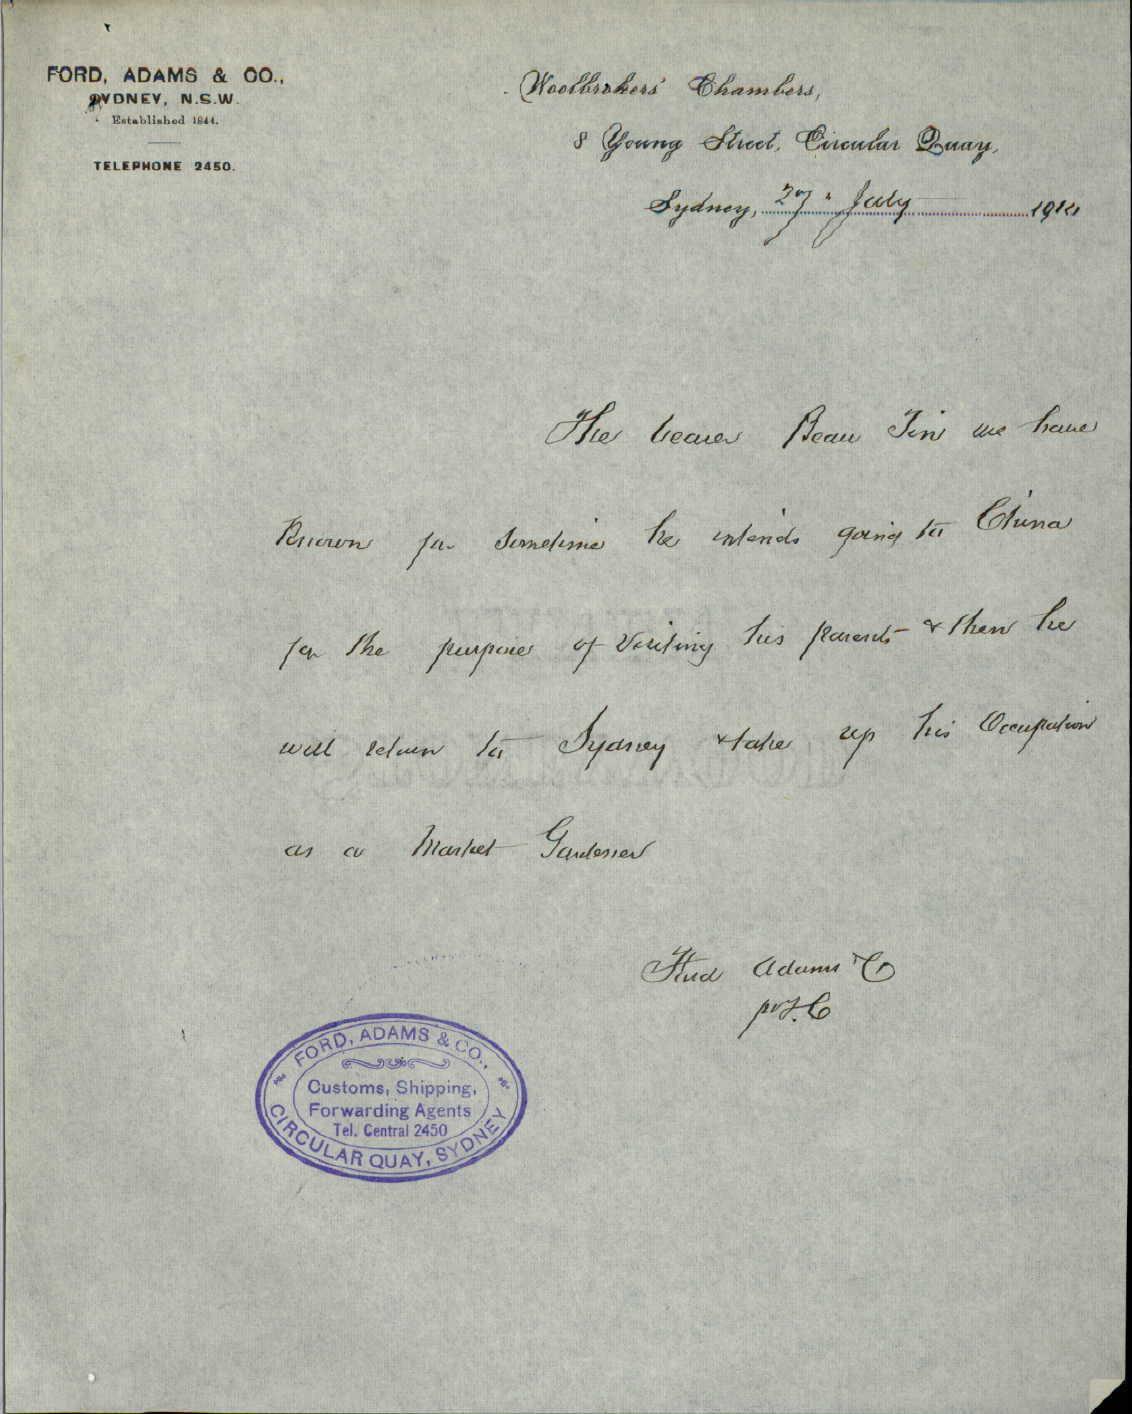 FORD, ADAMS & CO.,
SYDNEY, N.S.W.
Established 1844.
TELEPHONE 2450.
Woolbrokers' Chambers,
8 Young Street, Circular Quay,
Sydney, 27" July 191
The bearer Beau Tin we have
Known for sometime he intends going to China
for the purpose of Visiting his parents & then he
will return to Sydney & take up his Occupation
as a Market Gardener
Ford Adams & Co
FORD, ADAMS & CO.,
Customs, Shipping,
Forwarding Agents
Tel. Central 2450
CIRCULAR QUAY, SYDNEY